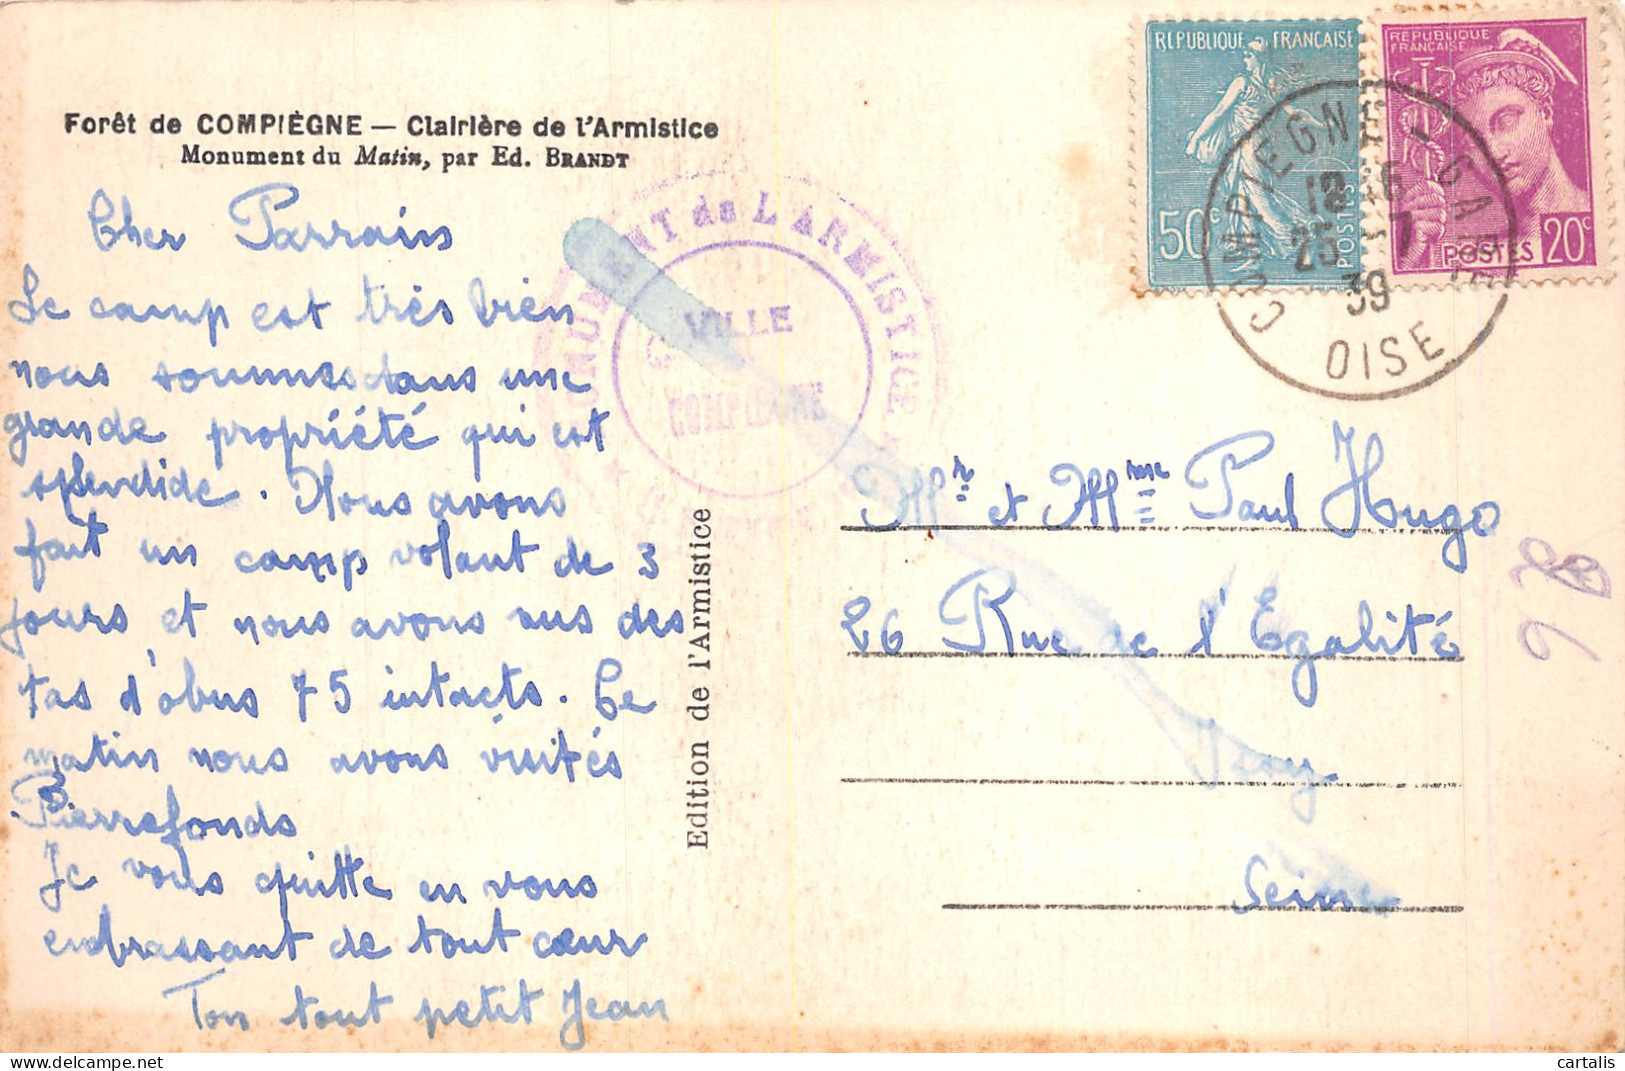 Forêt de COMPIÈGNE — Clairière de l'Armistice
Monument du Matin, par Ed. BRANDT
Cher Parrain
Le camp est très bien
nous sommes dans une
grande propriété qui est
splendide. Nous avons
fait un camp volant de 3
jours et nous avons vus des
tas d'obus 75 intacts. Ce
matin nous avons visités
Pierrefonds
Je vous quitte en vous
embrassant de tout cœur
Ton tout petit Jean
Edition de l'Armistice
MONUMENT de L'ARMISTICE
VILLE
COMPIEGNE
REPUBLIQUE FRANÇAISE
50c
POSTES
REPUBLIQUE
FRANÇAISE
POSTES 20c
COMPIEGNE - GARE
18 46
25 7
39
OISE
Mr et Mme Paul Hugo
26 Rue de l'Egalité
Seine
cartalis